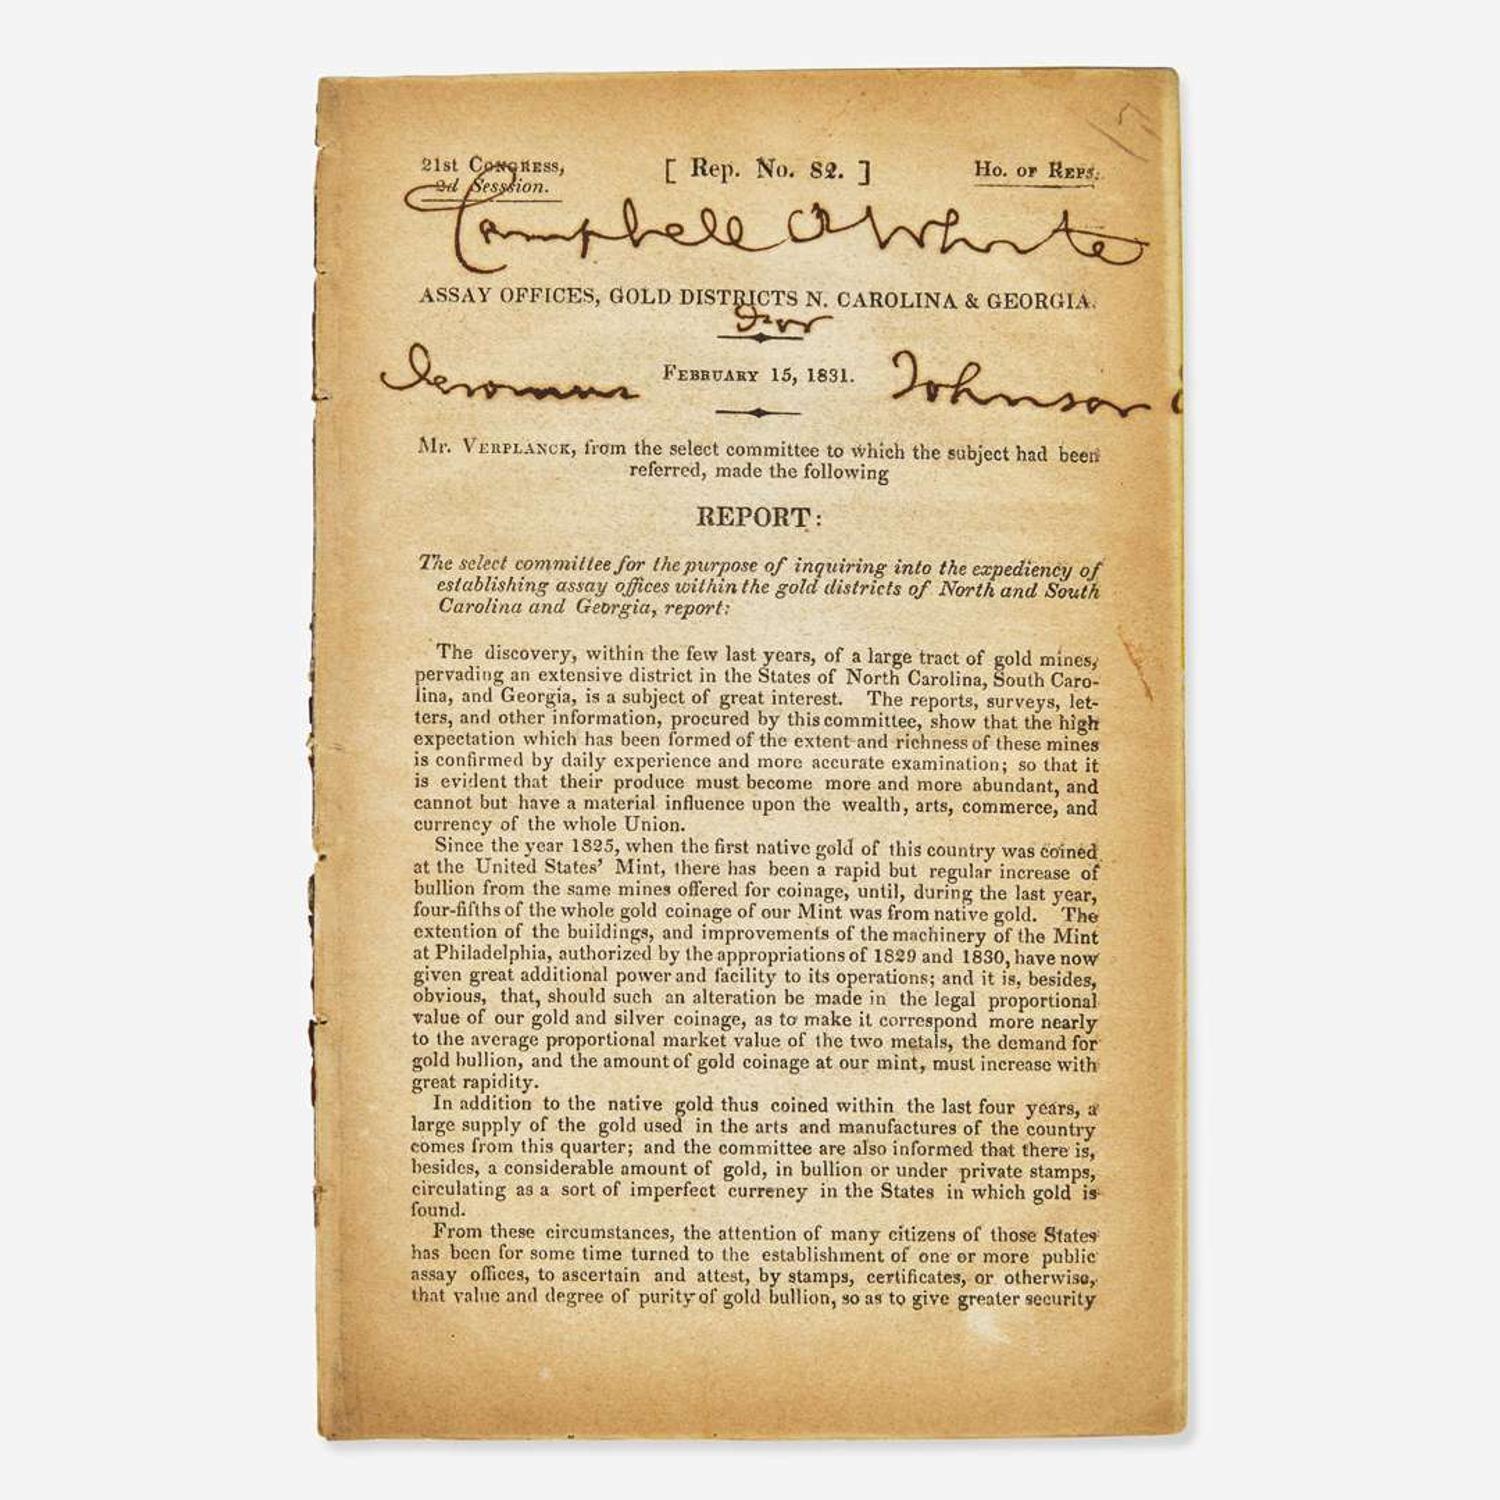 21st Congress, [ Rep. No. 82. ] Ho. of Reps.
2d Sesssion.
Campbell White
ASSAY OFFICES, GOLD DISTRICTS N. CAROLINA & GEORGIA.
For
February 15, 1831.
Jeromus Johnson
Mr. Verplanck, from the select committee to which the subject had been
referred, made the following
REPORT:
The select committee for the purpose of inquiring into the expediency of
establishing assay offices within the gold districts of North and South
Carolina and Georgia, report:
The discovery, within the few last years, of a large tract of gold mines,
pervading an extensive district in the States of North Carolina, South Caro-
lina, and Georgia, is a subject of great interest. The reports, surveys, let-
ters, and other information, procured by this committee, show that the high
expectation which has been formed of the extent and richness of these mines
is confirmed by daily experience and more accurate examination; so that it
is evident that their produce must become more and more abundant, and
cannot but have a material influence upon the wealth, arts, commerce, and
currency of the whole Union.
Since the year 1825, when the first native gold of this country was coined
at the United States' Mint, there has been a rapid but regular increase of
bullion from the same mines offered for coinage, until, during the last year,
four-fifths of the whole gold coinage of our Mint was from native gold. The
extention of the buildings, and improvements of the machinery of the Mint
at Philadelphia, authorized by the appropriations of 1829 and 1830, have now
given great additional power and facility to its operations; and it is, besides,
obvious, that, should such an alteration be made in the legal proportional
value of our gold and silver coinage, as to make it correspond more nearly
to the average proportional market value of the two metals, the demand for
gold bullion, and the amount of gold coinage at our mint, must increase with
great rapidity.
In addition to the native gold thus coined within the last four years, a
large supply of the gold used in the arts and manufactures of the country
comes from this quarter; and the committee are also informed that there is,
besides, a considerable amount of gold, in bullion or under private stamps,
circulating as a sort of imperfect currency in the States in which gold is
found.
From these circumstances, the attention of many citizens of those States
has been for some time turned to the establishment of one or more public
assay offices, to ascertain and attest, by stamps, certificates, or otherwise,
that value and degree of purity of gold bullion, so as to give greater security